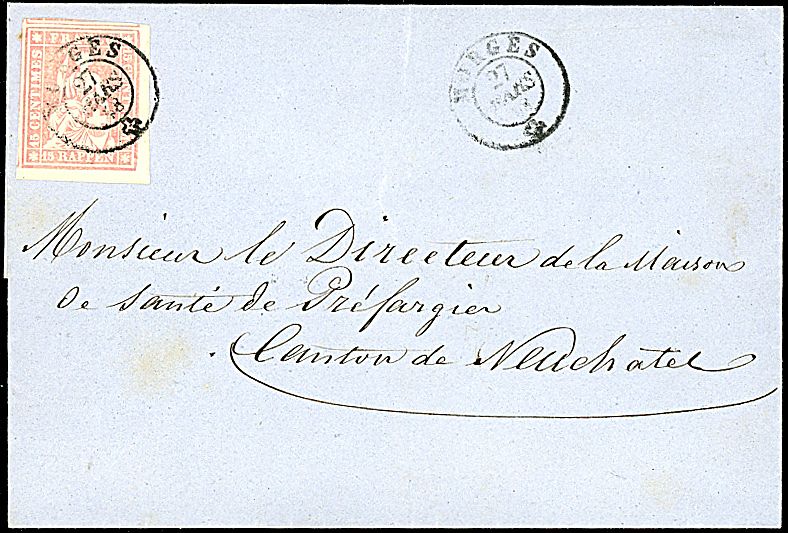 FR
15 CENTIMES
15 RAPPEN
MORGES
27
MARS
MORGES
27
MARS
Monsieur le Directeur de la Maison
de santé de Préfargier
Canton de Neuchatel